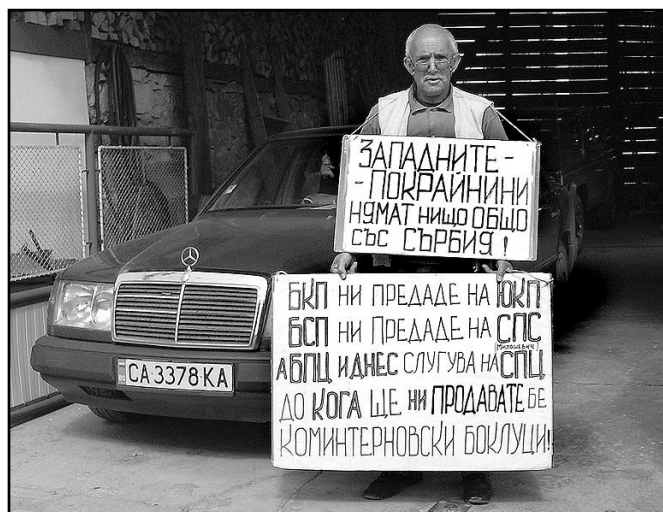 ЗАПАДНИТЕ -
- ПОКРАЙНИНИ
НЯМАТ НИЩО ОБЩО
СЪС СЪРБИЯ!
БКП НИ ПРЕДАДЕ НА ЮКП
БСП НИ ПРЕДАДЕ НА СПС
МИЛОШЕВИЧ
А БПЦ И ДНЕС СЛУГУВА НА СПЦ
ДО КОГА ЩЕ НИ ПРОДАВАТЕ БЕ
КОМИНТЕРНОВСКИ БОКЛУЦИ!
СА 3378 КА